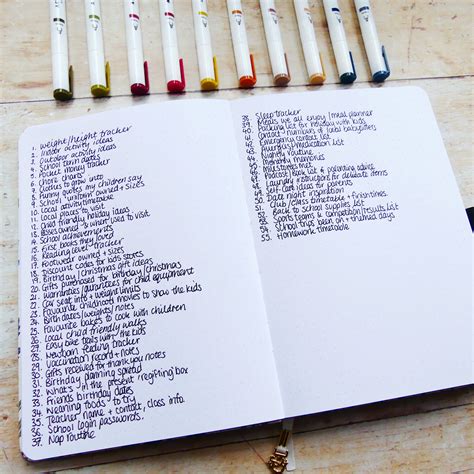 1. weight/height tracker
2. Indoor activity ideas
3. Outdoor activity ideas
4. School term dates
5. Pocket money tracker
6. Chore charts
7. Clothes to grow into
8. Funny quotes my children say
9. School uniform owned + sizes
10. Local activity timetable
11. Local places to visit
12. Child friendly holiday ideas
13. Places to visit
14. School achievements
15. First books they loved
16. Reading level tracker
17. Footwear owned + sizes
18. Discount codes for kids stores
19. Birthday/Christmas gift ideas
20. Gifts purchased for birthday/christmas
21. Warranties/guarantees for child equipment
22. Car seat info + weight limits
23. Favourite childhood movies to show the kids
24. Birth dates/weights/notes
25. Favourite bakes to cook with children
26. Local child friendly walks
27. Easy bike trails with the kids
28. Newborn feeding tracker
29. Vaccination record + notes
30. Gifts received for thank you notes
31. Birthday planning spread
32. What's in the present/regifting box
33. Friends birthday dates
34. Weaning foods - to try
35. Teacher name + contact, class info
36. School login passwords.
37. Nap routine
38. Sleep tracker
39. Meals we all enjoy / meal planner
40. Packing list for holiday with kids
41. Contact numbers of local babysitters
42. Emergency contact list
43. Allergies/medication list
44. Nightly routine
45. Monthly memories
46. Milestones met
47. Podcast/book list + parenting advice
48. Laundry instructions for delicate items
49. Self-care ideas for parents
50. Date night inspiration
51. Club/class timetable + finish times
52. Back to school supplies list
53. Sport teams & competition/results list
54. School trips been on + themed days
55. Homework timetable